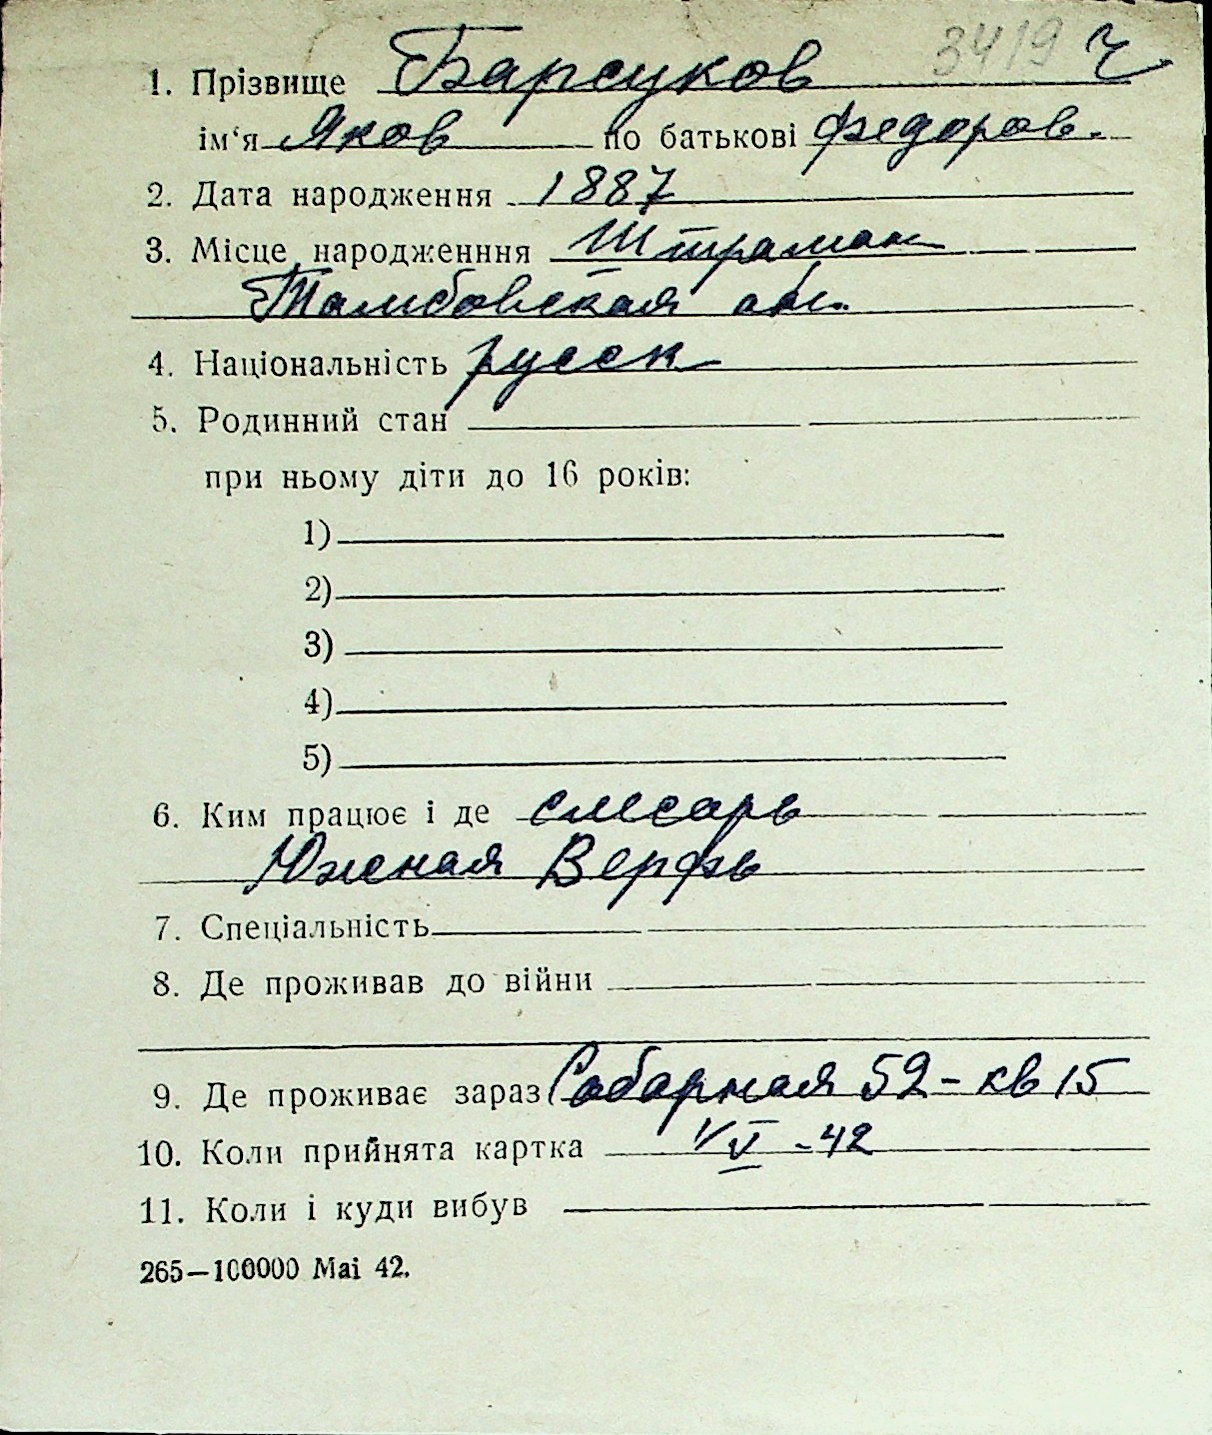 3419 Ч
1. Прізвище Барсуков
ім‘я Яков по батькові Федоров.
2. Дата народження 1887
3. Місце народженння
Тамбовская обл.
4. Національність русск
5. Родинний стан
при ньому діти до 16 років:
1)
2)
3)
4)
5)
6. Ким працює і де слесарь
Южная Верфь
7. Спеціальність
8. Де проживав до війни
9. Де проживає зараз Соборная 52 - кв 15
10. Коли прийнята картка V -42
11. Коли і куди вибув
265—100000 Mai 42.